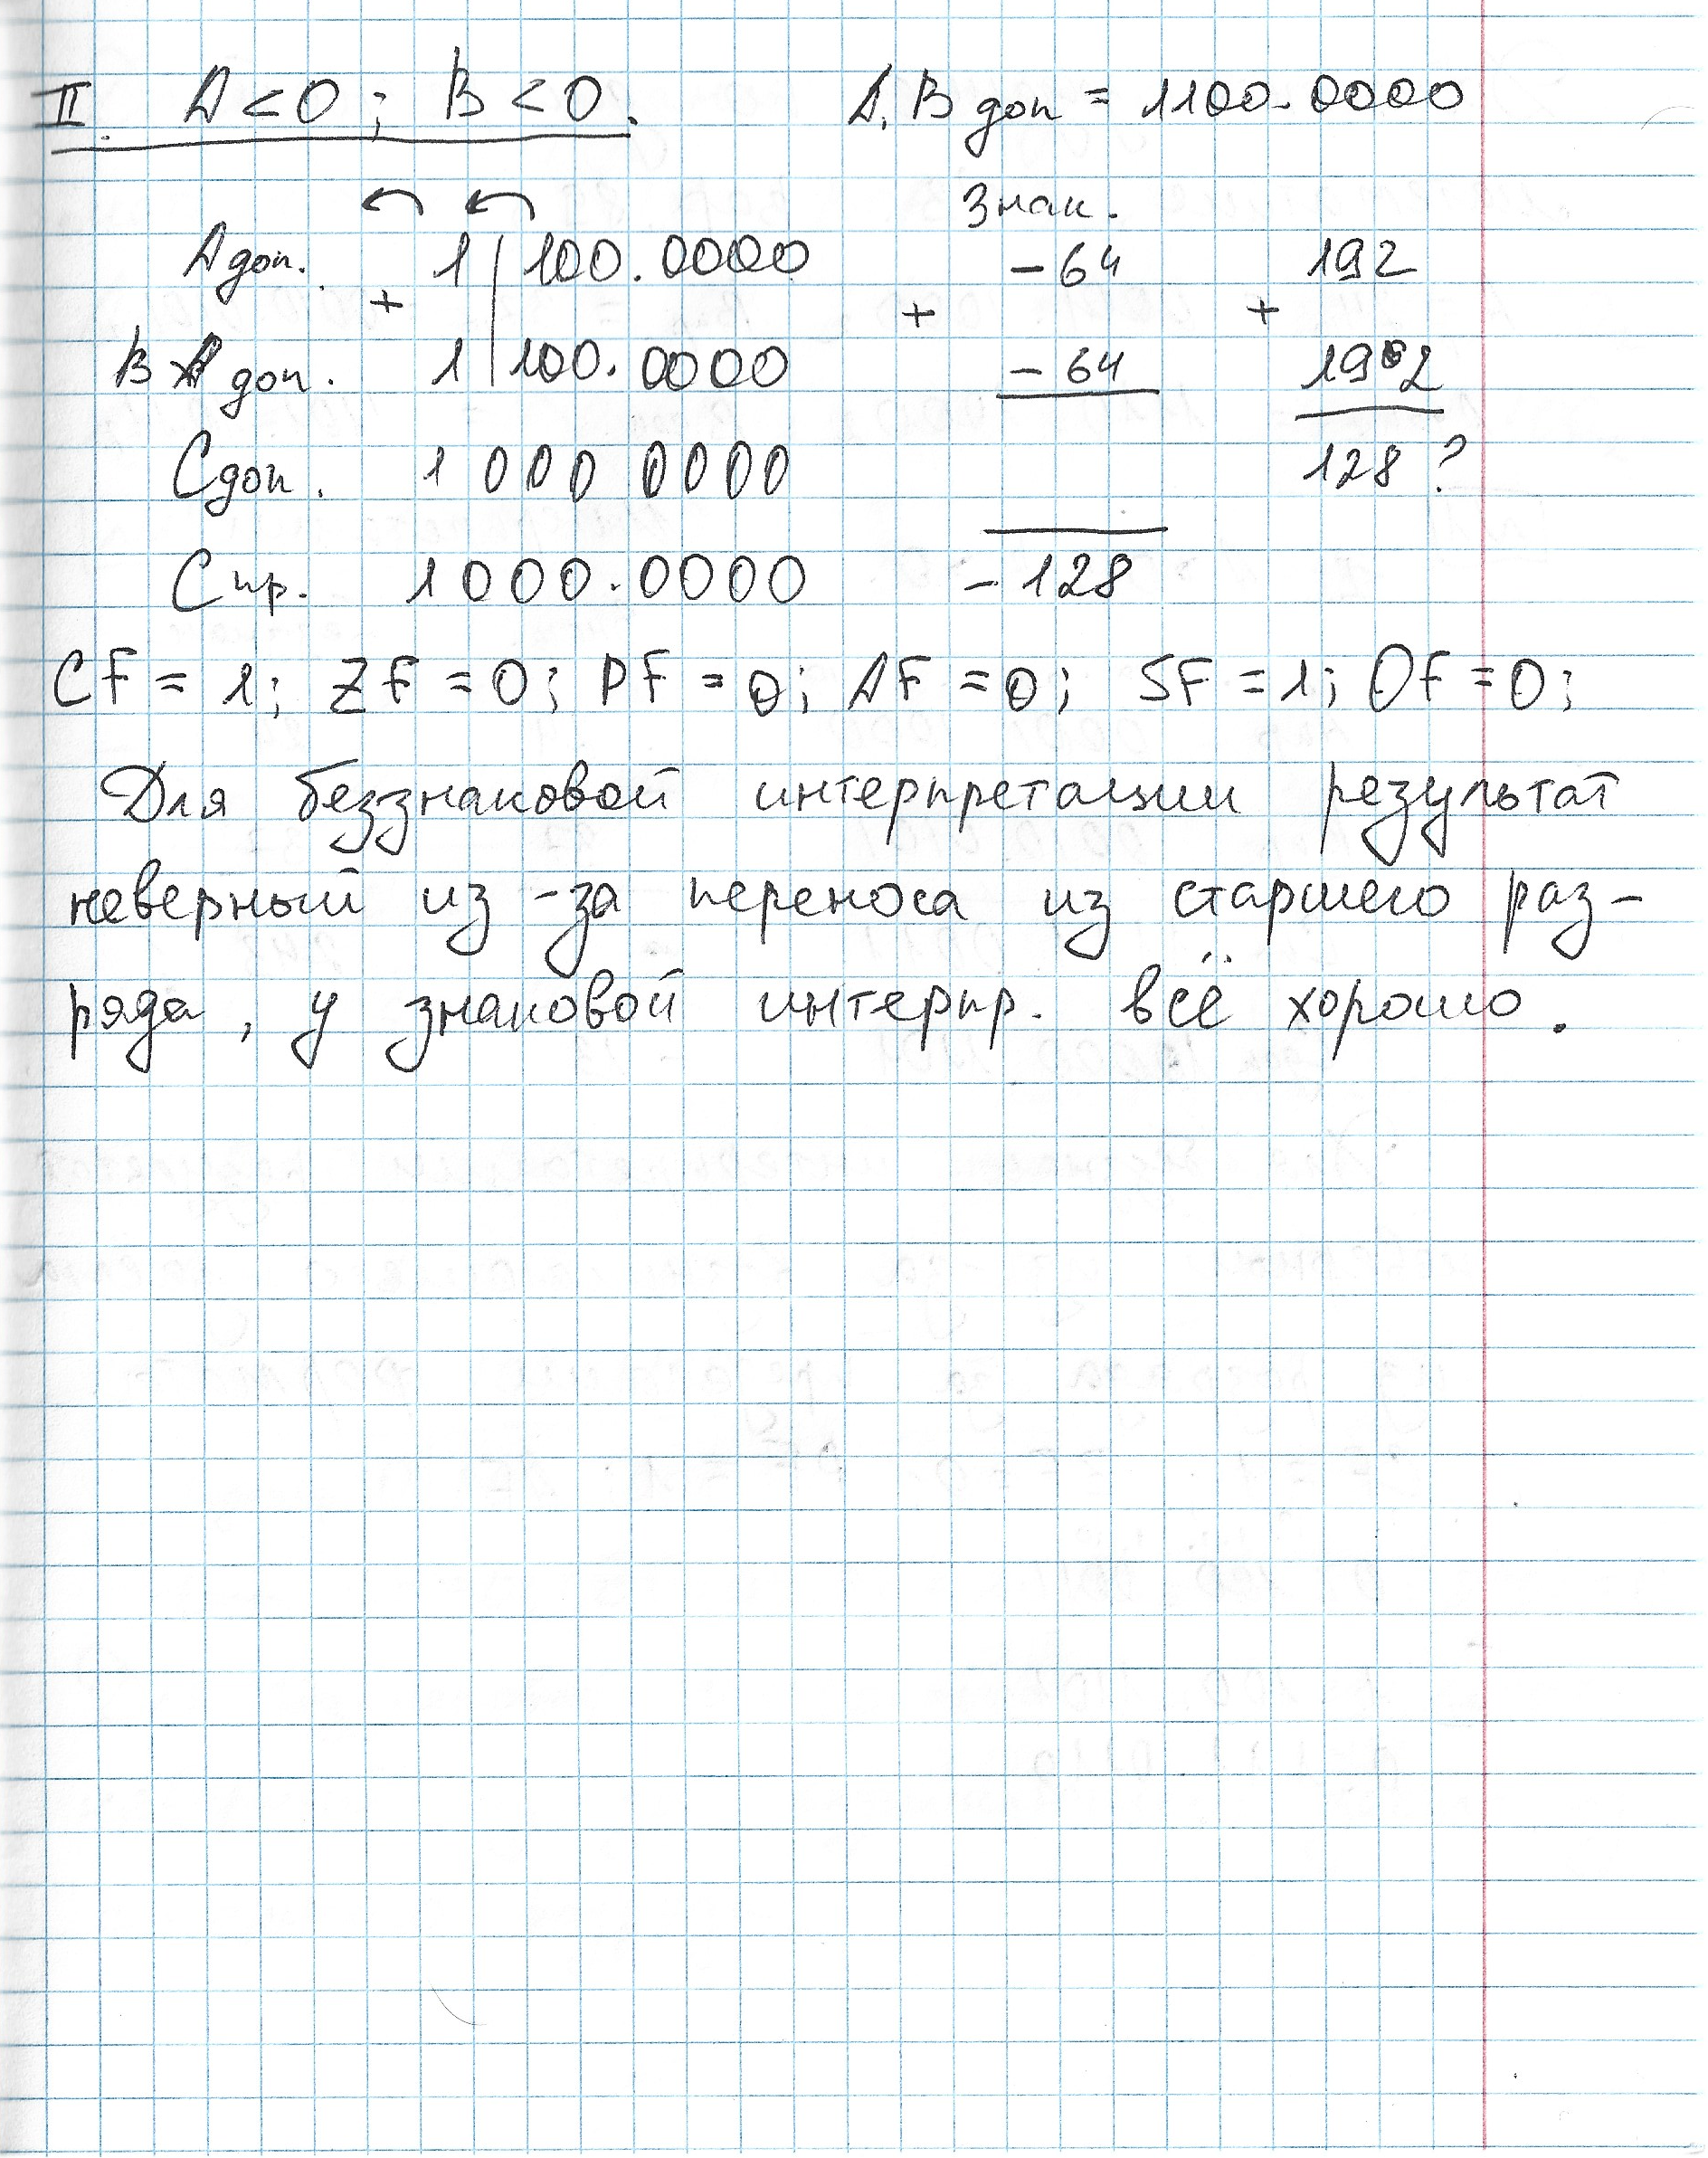 II. A<0; B<0. A,B доп = 1100.0000
Знак.
Aдоп. 1|100.0000 -64 192
+ + +
B доп. 1|100.0000 -64 192
Cдоп. 1 000 0000 128?
Cпр. 1000.0000 -128
CF = 1; ZF = 0; PF = 0; AF = 0; SF = 1; OF = 0;
Для беззнаковой интерпретации результат
неверный из-за переноса из старшего раз-
ряда, у знаковой интерпр. всё хорошо.